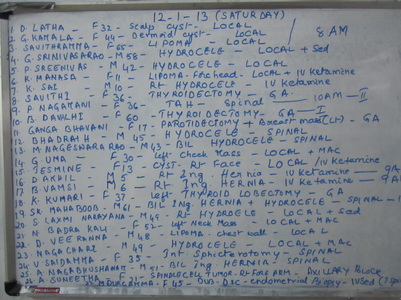 12-1-13 (SATURDAY)
1. D. LATHA - F 32 - Scalp cyst - LOCAL
2. G. KAMALA - F 44 - Dermoid cyst - LOCAL
3. SAVITHRAMMA - F 65 - LIPOMA - LOCAL 8 AM
4. G. SRINIVASARAO - M 58 - HYDROCELE - LOCAL + Sed
5. P. SREENIVAS - M 42 - HYDROCELE - LOCAL
6. K. MANASA - F 11 - LIPOMA - forehead - LOCAL + IV Ketamine
7. K. SAI - M 10 - Rt HYDROCELE - IV Ketamine
8. SAVITHI - F 36 - THYROIDECTOMY - GA
9. P NAGAMANI - F 36 - TAH - Spinal 10AM - II
10. B. DAVLHI - F 60 - THYROIDECTOMY - GA - I
11. GANGA BHAVANI - F 17 - PAROTIDECTOMY + Breast mass (Lt) - GA
12. BHADRAM - M 45 - HYDROCELE - SPINAL
13. M NAGESWARARAO - M 43 - BIL HYDROCELE - SPINAL
14. G UMA - F 30 - Left Cheek Mass - LOCAL + MAC
15. YESMINE - F 13 - CYST - Rt Face - LOCAL / IV Ketamine
16. D AKHIL - M 5 - Rt Ing. Hernia - IV Ketamine
17. B VAMSI - M 6 - Rt Ing HERNIA - IV Ketamine
18. K. KUMARI - F 37 - left THYROID LOBECTOMY - GA
19. SK MAHABOOB - M 61 - BIL ING. HERNIA + HYDROCELE - SPINAL
20. S LAXMI NARAYANA - M 49 - Rt HYDROCELE - LOCAL + Sed
21. N BADRA KALI - F 52 - Left Neck Mass - LOCAL + MAC
22. D. VEERANNA - M 48 - LIPOMA - chest wall - LOCAL
23. NAGACHARI - M 49 - HYDROCELE - LOCAL + MAC
24. V SAIDAMMA - F 35 - Int Sphincterotomy - SPINAL
A NAGABHUSHANAM - M 51 - BIL ING. HERNIA - SPINAL
A SUNEETHA - F 21 - SPINDLECELL TUMOR - RT FORE ARM - AXILLARY BLOCK
DURGAMMA - F 45 - endometrial Biopsy - IV Sed